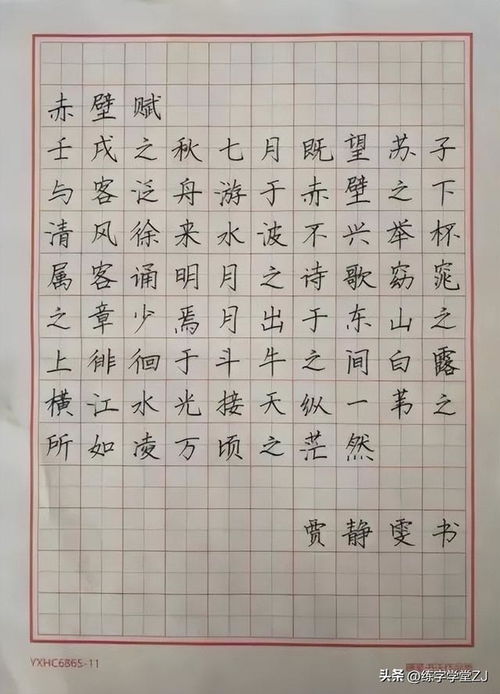 赤壁赋
壬戌之秋七月既望苏子
与客泛舟游于赤壁之下
清风徐来水波不兴举杯
属客诵明月之诗歌窈窕
之章少焉月出于东山之
上徘徊于斗牛之间白露
横江水光接天之纵一苇之
所如凌万顷之茫然
贾静雯书
YXHC6865-11
头条@练字学堂ZJ